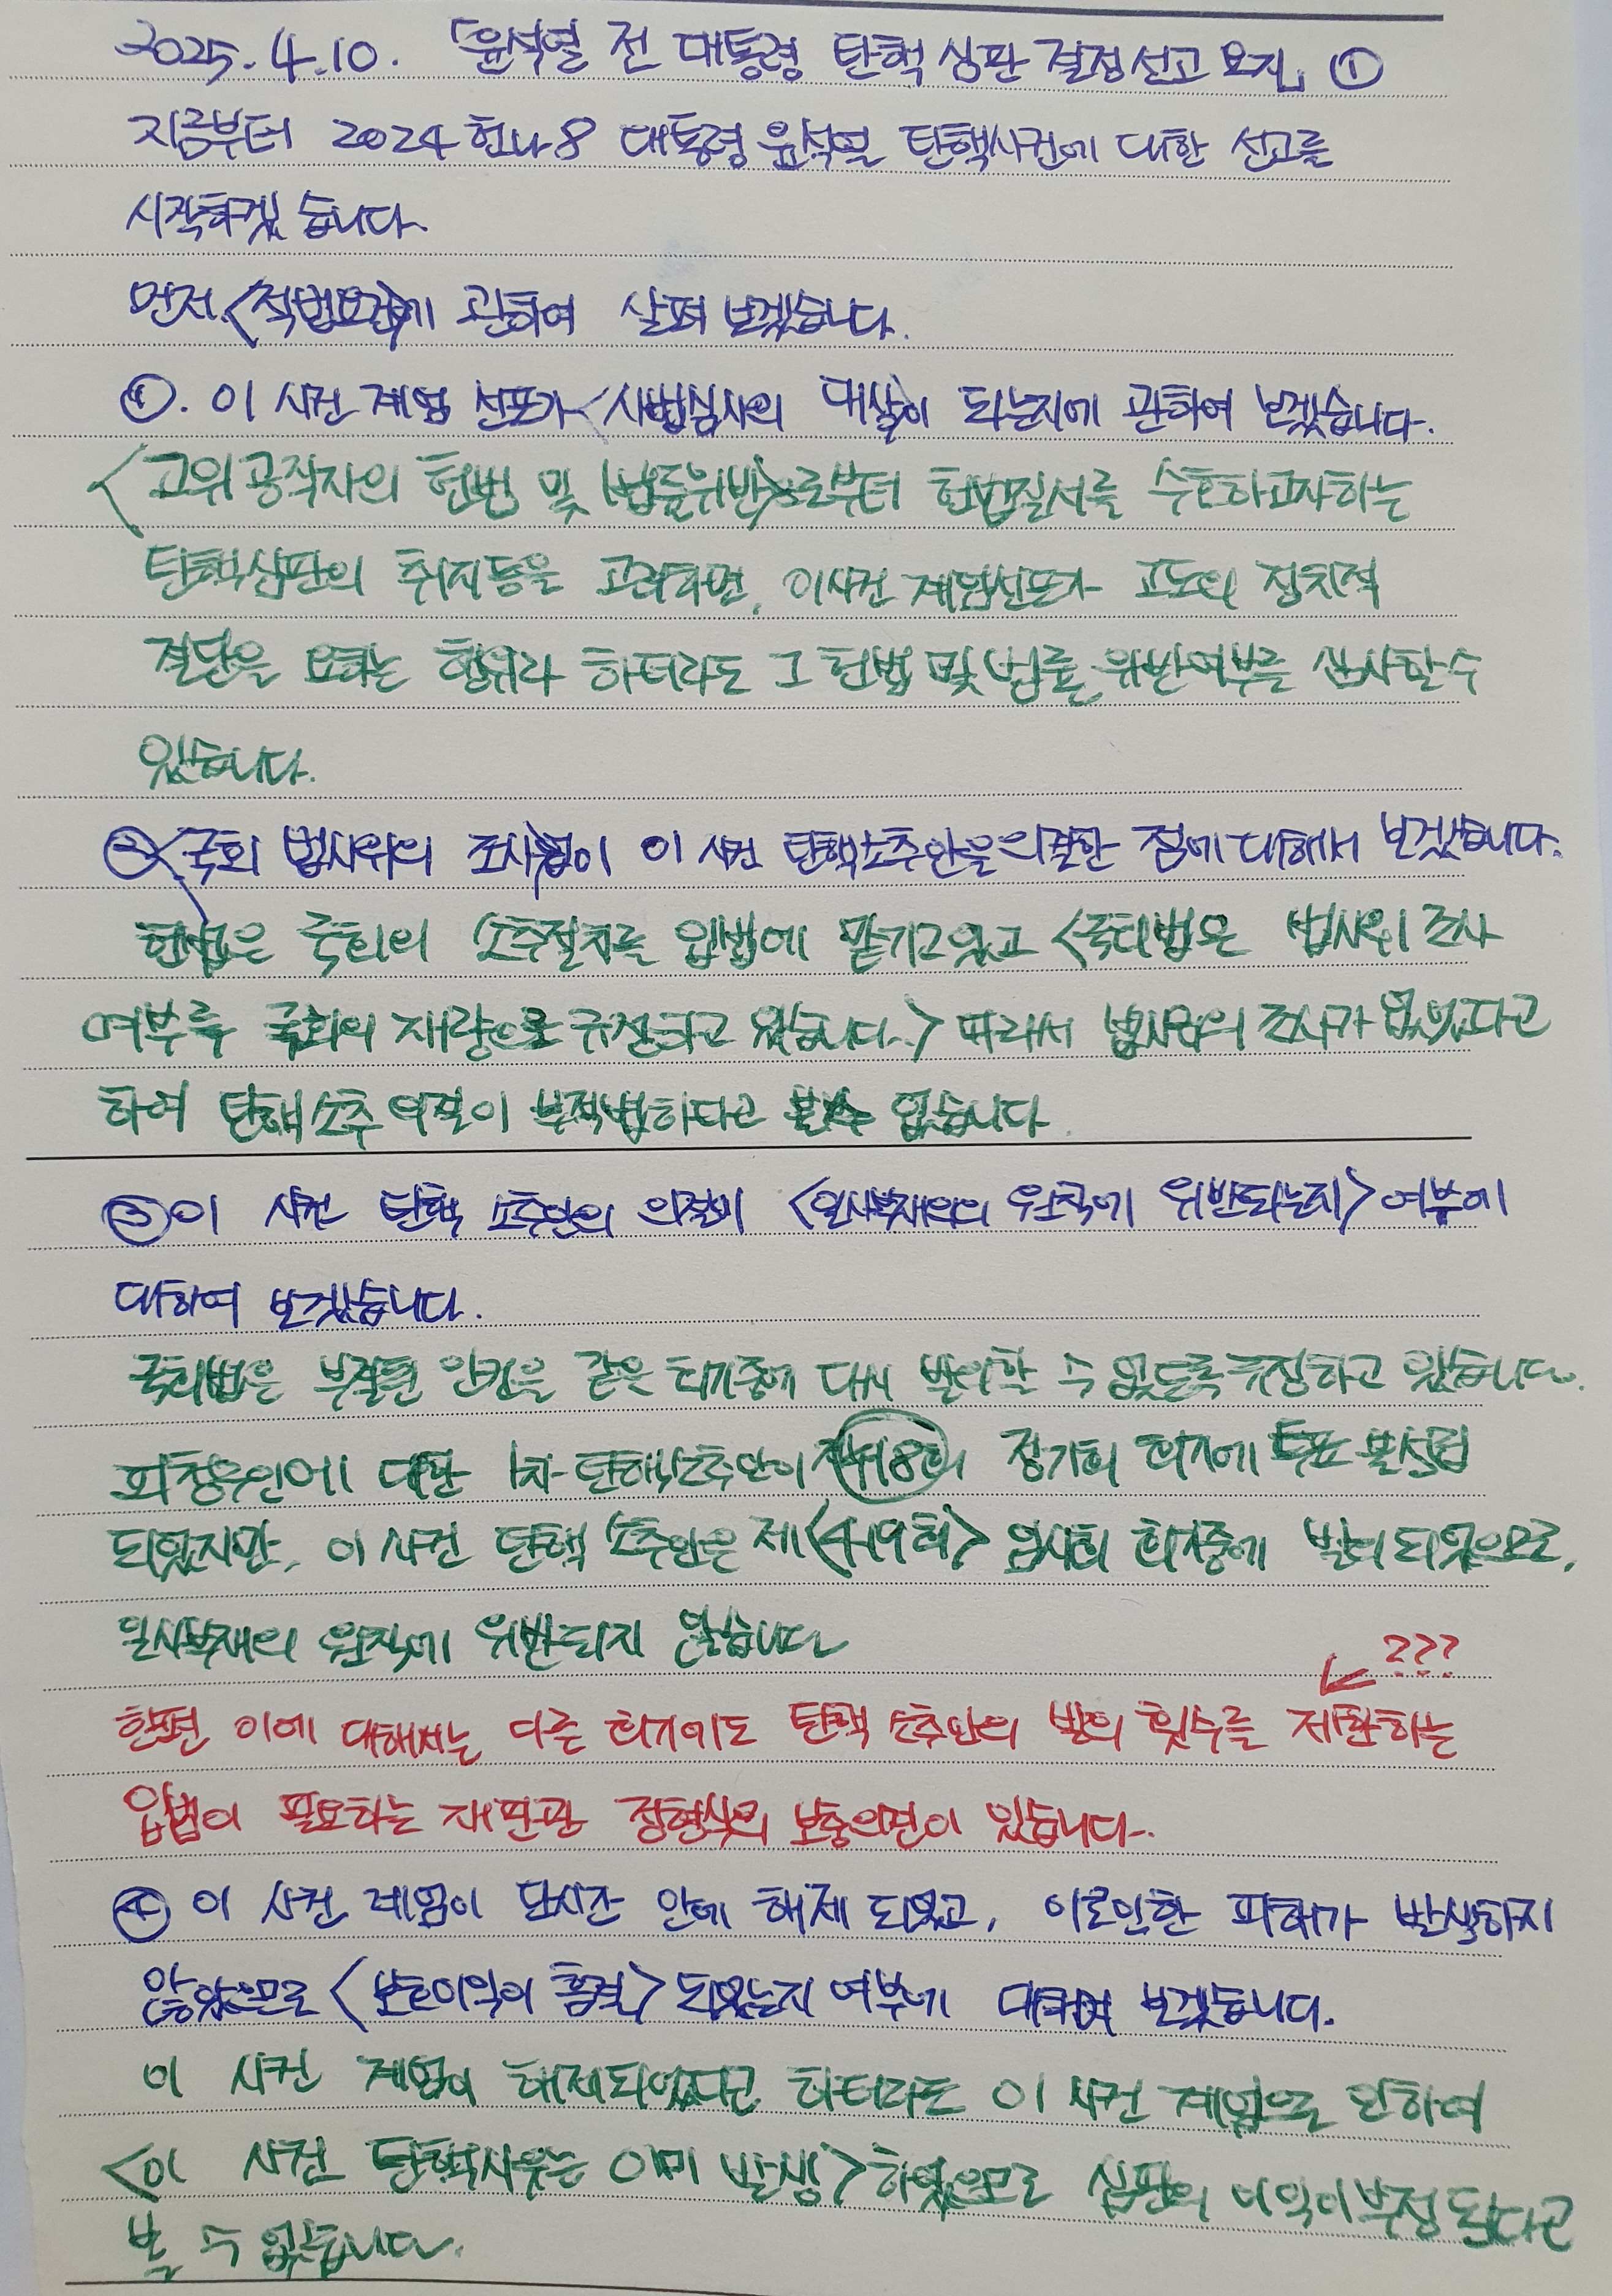 2025.4.10. 「윤석열 전 대통령 탄핵 심판 결정선고 요지」 ①
지금부터 2024헌나8 대통령 윤석열 탄핵사건에 대한 선고를
시작하겠습니다.
먼저 <적법요건>에 관하여 살펴 보겠습니다.
①. 이 사건 계엄 선포가 <사법심사의 대상>이 되는지에 관하여 보겠습니다.
<고위공직자의 헌법 및 법률위반>으로부터 헌법질서를 수호하고자하는
탄핵심판의 취지등을 고려하면, 이사건 계엄선포가 고도의 정치적
결단을 요하는 행위라 하더라도 그 헌법 및 법률 위반여부를 심사할 수
있습니다.
② <국회 법사위의 조사>없이 이 사건 탄핵소추안을 의결한 점에 대해서 보겠습니다.
헌법은 국회의 소추절차를 입법에 맡기고있고 <국회법은 법사위 조사
여부를 국회의 재량으로 규정하고 있습니다.> 따라서 법사위의 조사가 없었다고
하여 탄핵소추 의결이 부적법하다고 볼수 없습니다.
③ 이 사건 탄핵 소추안의 의결이 <일사부재의의 원칙에 위반되는지> 여부에
대하여 보겠습니다.
국회법은 부결된 안건을 같은 회기중에 다시 발의할 수 없도록 규정하고 있습니다.
피청구인에 대한 1차 탄핵소추안이 제418회 정기회 회기에 투표 불성립
되었지만, 이 사건 탄핵 소추안은 제<419회> 임시회 회기중에 발의 되었으므로,
일사부재의 원칙에 위반되지 않습니다
↙???
한편 이에 대해서는 다른 회기에도 탄핵 소추안의 발의 횟수를 제한하는
입법이 필요하는 재판관 정형식의 보충의견이 있습니다.
④ 이 사건 계엄이 단시간 안에 해제 되었고, 이로인한 피해가 발생하지
않았으므로 <보호이익이 흠결> 되었는지 여부에 대하여 보겠습니다.
이 사건 계엄이 해제되었다고 하더라도 이 사건 계엄으로 인하여
<이 사건 탄핵사유는 이미 발생> 하였으므로 심판의 이익이 부정된다고
볼 수 없습니다.